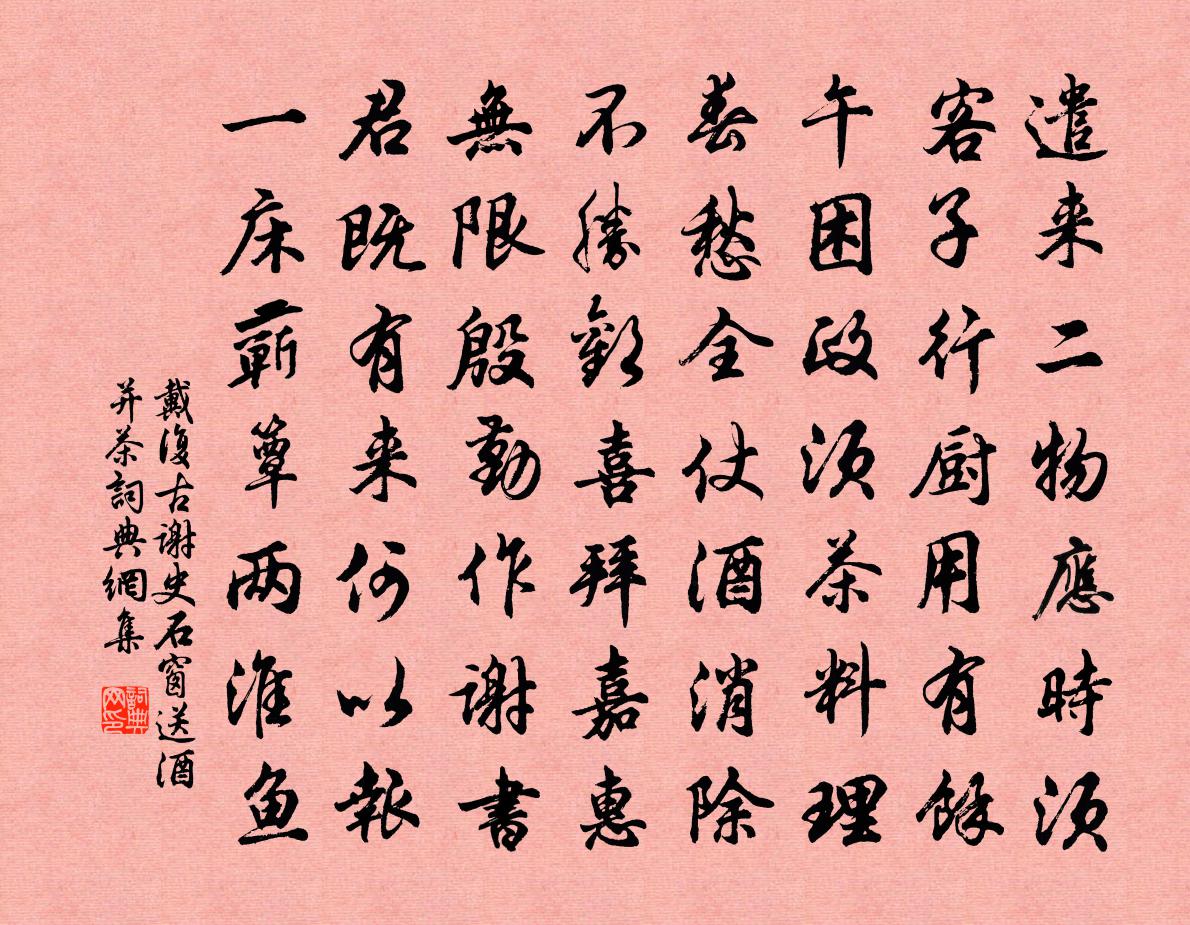 遣来二物應時須
客子行厨用有餘
午困政須茶料理
春愁全仗酒消除
不勝歡喜拜嘉惠
無限殷勤作謝書
君既有来何以報
一床蕲簟两淮鱼
戴復古谢史石窗送酒
并茶詞典網集
詞典网印